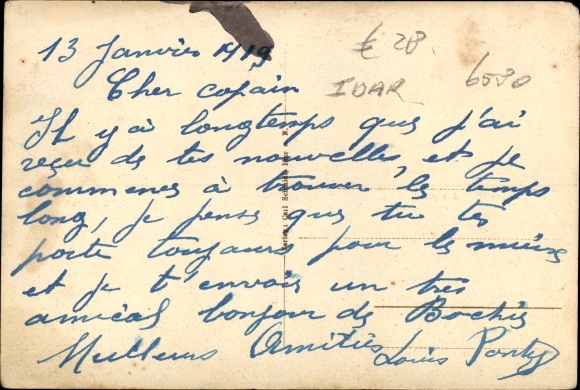 13 Janvier 1919
€ 28.
IDAR
6580
Cher copain
Il y a longtemps que j'ai
reçu de tes nouvelles, et je
commence à trouver le temps
long, je pense que tu tes
porte toujours pour le mieux
et je t'envois un très
amical bonjour de Bochie
Meilleurs Amitiés Louis